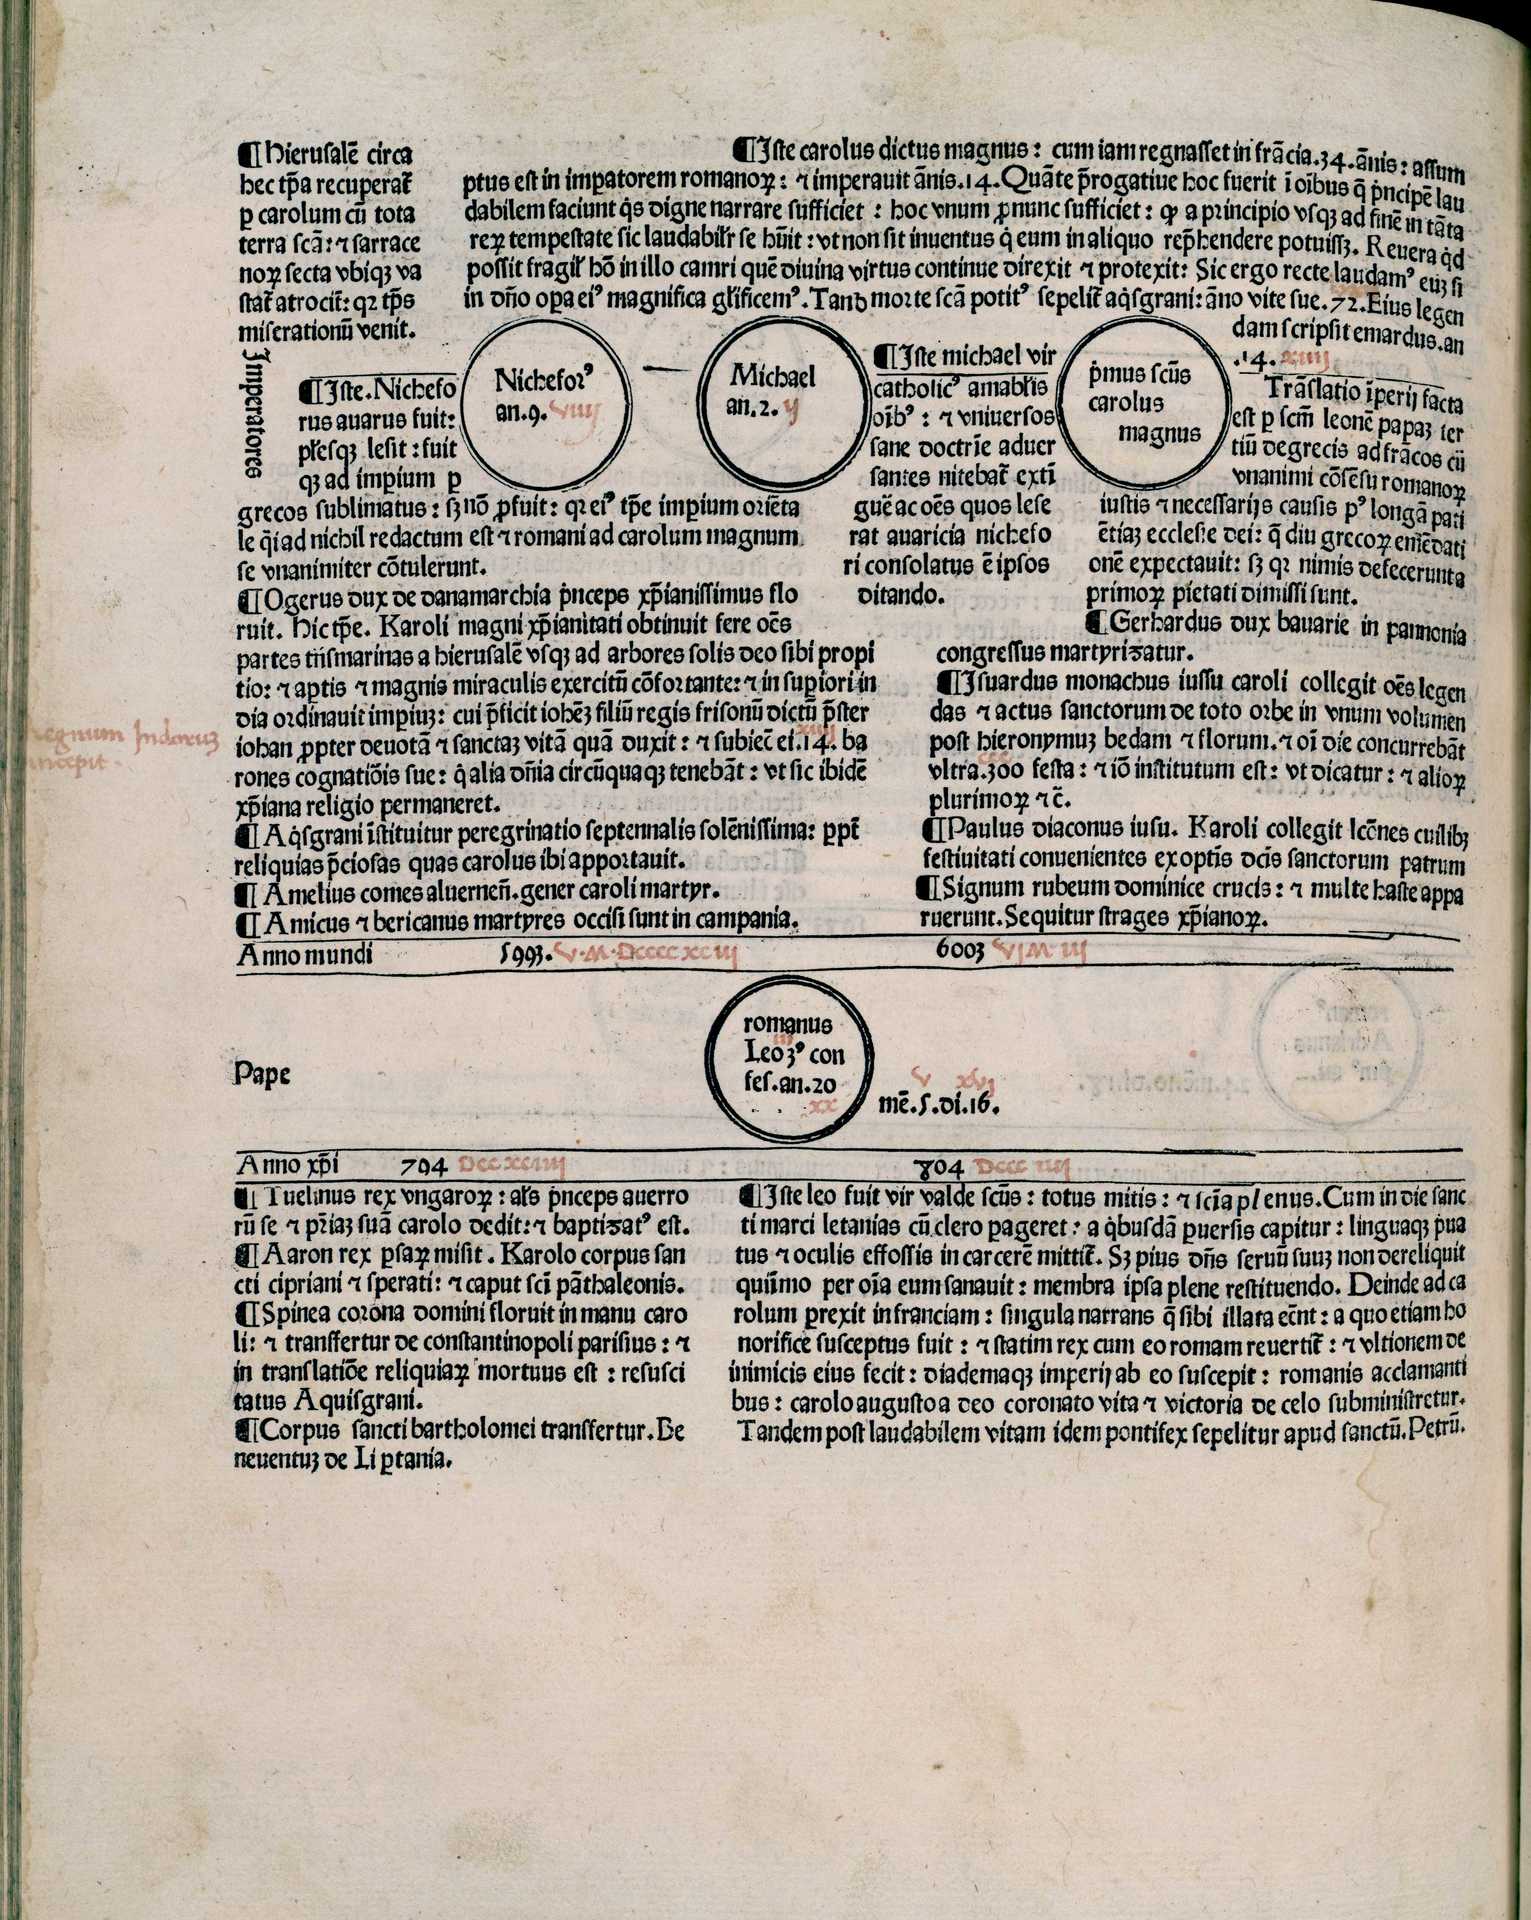 ¶Hierusalē circa
hec tp̄a recuperat̄
ꝑ carolum cū tota
terra scā: ⁊ sarrace
noꝝ secta vbiqꝫ va
stat̄ atrocit̄: qꝛ tp̄s
miserationū venit.
¶Iste carolus dictus magnus: cum iam regnasset in frācia.34.ānis: assum
ptus est in imꝑatorem romanoꝝ: ⁊ imperauit ānis.14. Quāte p̄rogatiue hoc fuerit ī oībus q̄ pͥncipē lau
dabilem faciunt qͥs digne narrare sufficiet: hoc vnum ꝓnunc sufficiet: ꝙ a principio vsqꝫ ad finē in tāta
reꝝ tempestate sic laudabilr̄ se hūit: vt non sit inuentus qͥ eum in aliquo rep̄hendere potuissꝫ. Reuera qͥd
possit fragil̄ hō in illo camri quē diuina virtus continue direxit ⁊ protexit: Sic ergo recte laudamꝰ euꝫ si
in dn̄o oꝑa eiꝰ magnifica gl̄ificemꝰ. Tandē morte scā potitꝰ sepelit̄ aqͥsgrani: āno vite sue.72. Eius legen
dam scripsit emardus. an
.14. xiiij
Imperatores
¶Iste.Nichefo
rus auarus fuit:
pl̄esqꝫ lesit: fuit
qꝫ ad imꝑium ꝑ
grecos sublimatus: sꝫ nō ꝓfuit: qꝛ eiꝰ tp̄e imꝑium oriēta
le q̄i ad nichil redactum est ⁊ romani ad carolum magnum
se vnanimiter cōtulerunt.
Nicheforꝰ
an.9. viiij
Michael
an.2. ij
¶Iste michael vir
catholicꝰ amabl̄is
oībꝰ: ⁊ vniuersos
sane doctrīe aduer
santes nitebat̄ extī
guē ac oēs quos lese
rat auaricia nichefo
ri consolatus ē ipsos
ditando.
pͥmus scūs
carolus
magnus
Trāslatio īperij facta
est ꝑ scm̄ leonē papaꝫ ter
tiū de grecis ad frācos cū
vnanimi cōsēsu romanoꝝ
iustis ⁊ necessarijs causis pꝰ longā pati
ētiaꝫ ecclesie dei: q̄ diu grecoꝝ emēdati
onē expectauit: sꝫ qꝛ nimis defecerunt a
primoꝝ pietati dimissi sunt.
¶Ogerus dux de danamarchia pͥnceps xp̄ianissimus flo
ruit. Hic tp̄e. Karoli magni xp̄ianitati obtinuit fere oēs
partes trn̄smarinas a hierusalē vsqꝫ ad arbores solis deo sibi propi
tio: ⁊ aꝑtis ⁊ magnis miraculis exercitū cōfortante: ⁊ in suꝑiori in
dia ordinauit imꝑiuꝫ: cui p̄ficit iohēꝫ filiū regis frisonū dictū p̄ster
iohan ꝓpter deuotā ⁊ sanctaꝫ vitā quā duxit: ⁊ subiec̄ ei.14. ba
xiiij
rones cognatiōis sue: qͥ alia dn̄ia circūquaqꝫ tenebāt: vt sic ibidē
xp̄iana religio permaneret.
regnum Indorum
incepit.
¶Aqͥsgrani īstituitur peregrinatio septennalis solēnissima: ꝓpt̄
reliquias p̄ciosas quas carolus ibi apportauit.
¶Amelius comes aluernen̄.gener caroli martyr.
¶Amicus ⁊ bericanus martyres occisi sunt in campania.
¶Gerhardus dux bauarie in pannonia
congressus martyrizatur.
¶Isuardus monachus iussu caroli collegit oēs legen
das ⁊ actus sanctorum de toto orbe in vnum volumen
post hieronymuꝫ bedam ⁊ florum. ⁊ oī die concurrebāt
ccc
vltra.300 festa: ⁊ iō institutum est: vt dicatur: ⁊ alioꝝ
plurimoꝝ ⁊ c̄.
¶Paulus diaconus iusu. Karoli collegit lcōnes cuilibꝫ
festiuitati conuenientes ex optīs dcīs sanctorum patrum
¶Signum rubeum dominice crucis: ⁊ multe haste appa
ruerunt. Sequitur strages xp̄ianoꝝ.
Anno mundi 5993. V.M.Dcccc xciij 6003 VI M iij
Pape
romanus
iij
Leo 3ꝰ con
fes.an.20
xx
v xvj
mē.5.di.16.
Anno xp̄i 794 Dcc xciiij 804 Dccc iiij
¶Tuelinus rex vngaroꝝ: al̄s pͥnceps auerro
rū se ⁊ pr̄iaꝫ suā carolo dedit: ⁊ baptizatꝰ est.
¶Aaron rex ꝑsaꝝ misit. Karolo corpus san
cti cipriani ⁊ sperati: ⁊ caput sci̅ pāthaleonis.
¶Spinea corona domini floruit in manu caro
li: ⁊ transfertur de constantinopoli parisius: ⁊
in translatiōe reliquiaꝝ mortuus est: resusci
tatus Aquisgrani.
¶Corpus sancti bartholomei transfertur. Be
neuentuꝫ de Liꝑtania.
¶Iste leo fuit vir valde scūs: totus mitis: ⁊ scīa plenus. Cum in die sanc
ti marci letanias cū clero ꝑageret: a qͥbusdā ꝑuersis capitur: linguaqꝫ pͥua
tus ⁊ oculis effossis in carcerē mittit̄. Sꝫ pius dn̄s seruū suuꝫ non dereliquit
quiīmo per oīa eum sanauit: membra ipsa plene restituendo. Deinde ad ca
rolum ꝑrexit in franciam: singula narrans q̄ sibi illata ern̄t: a quo etiam ho
norifice susceptus fuit: ⁊ statim rex cum eo romam reuertit̄: ⁊ vltionem de
inimicis eius fecit: diademaqꝫ imperij ab eo suscepit: romanis acclamanti
bus: carolo augusto a deo coronato vita ⁊ victoria de celo subministretur.
Tandem post laudabilem vitam idem pontifex sepelitur apud sanctū. Petrū.